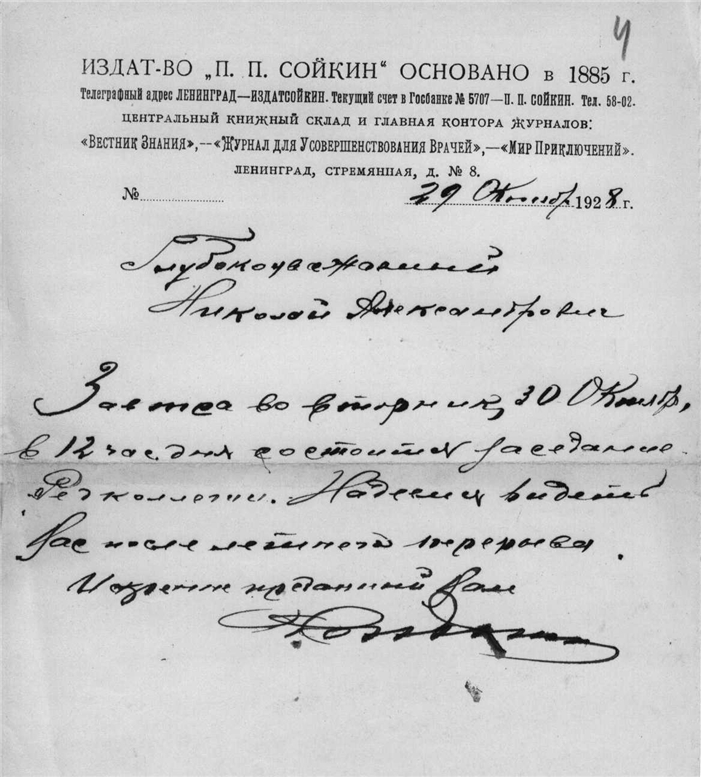 4
ИЗДАТ-ВО „П. П. СОЙКИН“ ОСНОВАНО в 1885 г.
Телеграфный адрес ЛЕНИНГРАД—ИЗДАТСОЙКИН. Текущий счет в Госбанке № 5707—П. П. СОЙКИН. Тел. 58-02.
ЦЕНТРАЛЬНЫЙ КНИЖНЫЙ СКЛАД И ГЛАВНАЯ КОНТОРА ЖУРНАЛОВ:
«ВЕСТНИК ЗНАНИЯ»,—«ЖУРНАЛ ДЛЯ УСОВЕРШЕНСТВОВАНИЯ ВРАЧЕЙ»,—«МИР ПРИКЛЮЧЕНИЙ».
ЛЕНИНГРАД, СТРЕМЯННАЯ, Д. № 8.
№ 29 Октябр 1928 г.
Глубокоуважаемый
Николай Александрович
Завтра во вторник, 30 Октябр,
в 12 час дня состоится заседание
Редколлегии. Надеемся видеть
Вас после летнего перерыва.
Искренне преданный Вам